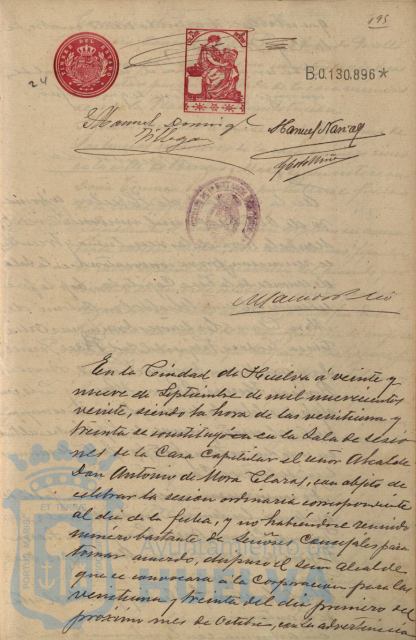 195
TIMBRE DEL ESTADO
24
B.0.130.896*
Manuel Domingz
Villega
Manuel Narvaez
Mauricio
En la Ciudad de Huelva á veinte y
nueve de Septiembre de mil nuevecientos
veinte, siendo la hora de las veintiuna y
treinta se constituyó en la Sala de sesio
nes de la Casa Capitular el señor Alcalde
Don Antonio de Mora Claros, con objeto de
celebrar la sesion ordinaria correspondiente
al dia de la fecha, y no habiendose reunido
numero bastante de señores Concejales para
tomar acuerdo, dispuso el señor alcalde
que se convocara á la Corporacion para las
veintiuna y treinta del dia primero del
proximo mes de Octubre, con la advertencia
Ayuntamiento de
HUELVA
PORTUS MARIS
ET TERRAE